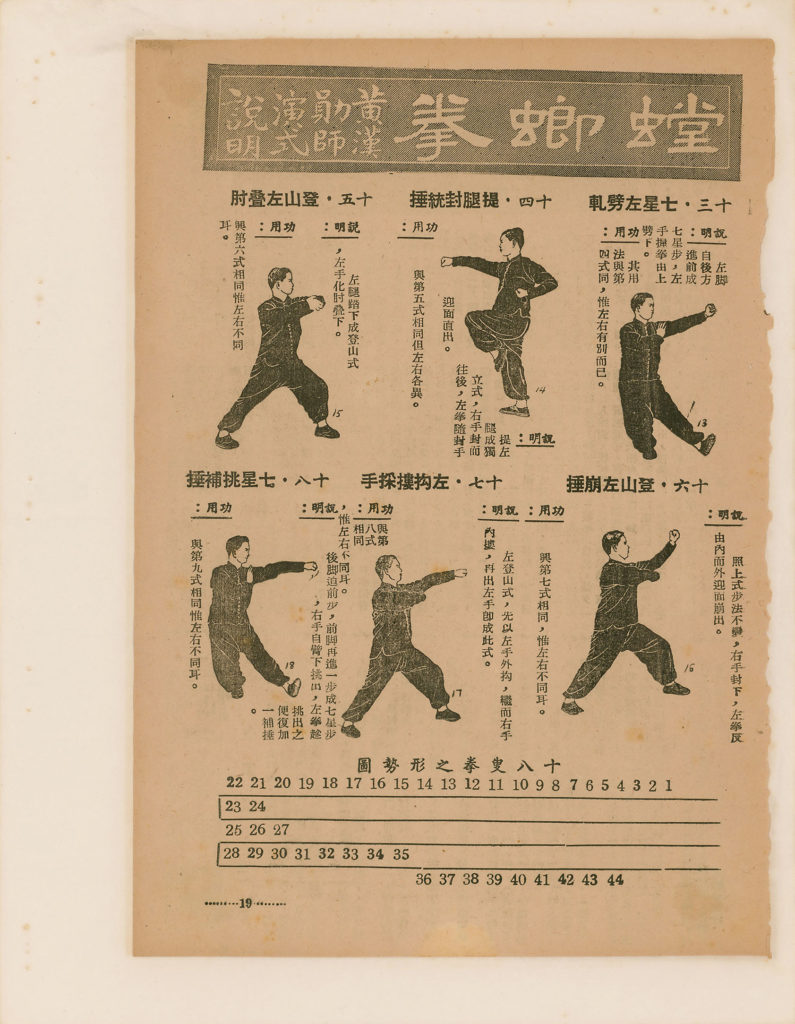 螳螂拳
黃漢
勛師
演式
說明
十三・七星左劈軋
說明：
左脚
自後方
進前成
七星步，左
手握拳出上
劈下。
功用：
其用
法與第
四式同，惟左右有別而已。
13
十四・提腿封統捶
說明：
提左
腿成獨
立式，右手封而
往後，左拳隨封手
迎面直出。
功用：
與第五式相同但左右各異。
14
十五・登山左疊肘
說明：
左腿踏下成登山式
，左手化肘疊下。
功用：
與第六式相同惟左右不同
耳。
15
十六・登山左崩捶
說明：
照上式步法不變，右手封下，左拳反
由內而外迎面崩出。
功用：
與第七式相同，惟左右不同耳。
16
十七・左拘摟採手
說明：
左登山式，先以左手外拘，繼而右手
內摟，再出左手卽成此式。
功用：
與第
八式
相同
，惟左右不同耳。
17
十八・七星挑補捶
說明：
後脚追前步，前脚再進一步成七星步
，右手自臂下挑出，左拳趁
挑出之
便復加
一補捶
。
功用：
與第九式相同惟左右不同耳。
18
十八叟拳之形勢圖
22 21 20 19 18 17 16 15 14 13 12 11 10 9 8 7 6 5 4 3 2 1
23 24
25 26 27
28 29 30 31 32 33 34 35
36 37 38 39 40 41 42 43 44
………19………